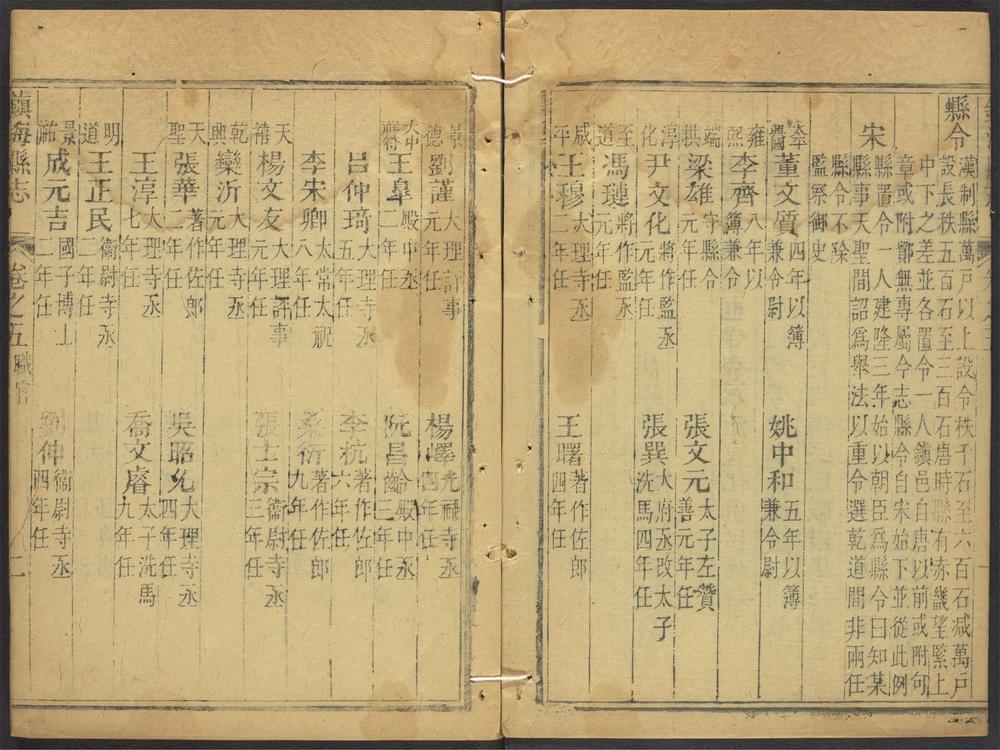 縣令
漢制縣萬戸以上設令秩千石至六百石減萬戸
設長秩五百石至三百石唐時縣有赤畿望緊上
中下之差並各置令一人鎮邑自唐以前或附句
章或附鄮無專屬令志縣令自宋始下並從此例
宋
縣置令一人建隆三年始以朝臣爲縣令曰知某
縣事天聖間詔爲舉法以重令選乾道間非兩任
縣令不除
監察御史
太平興國
董文質 四年以簿兼令尉
姚中和 五年以簿兼令尉
雍熙
李齊 八年以簿兼令
端拱
梁雄 元年任守縣令
張文元 太子左贊善元年任
淳化
尹文化 將作監丞元年任
張巽 大府丞改太子洗馬四年任
至道
馮璉 將作監丞元年任
咸平
王穆 大理寺丞二年任
王曙 著作佐郎四年任
景德
劉謹 大理評事元年任
楊嶧 光祿寺丞四年任
大中祥符
王皐 殿中丞二年任
阮昌齡 殿中丞三年任
呂仲琦 大理寺丞五年任
李杭 著作佐郎六年任
李宋卿 太常太祝八年任
桑衍 著作佐郎九年任
天禧
楊文友 大理評事元年任
張士宗 衞尉寺丞三年任
乾興
欒沂 大理寺丞元年任
天聖
張華 著作佐郎二年任
吳昭允 大理寺丞四年任
王淳 大理寺丞七年任
喬文睿 太子洗馬九年任
明道
王正民 衞尉寺丞二年任
景祐
成元吉 國子博士二年任
劉仲 衞尉寺丞四年任
鎮海縣志
卷之五 職官
二